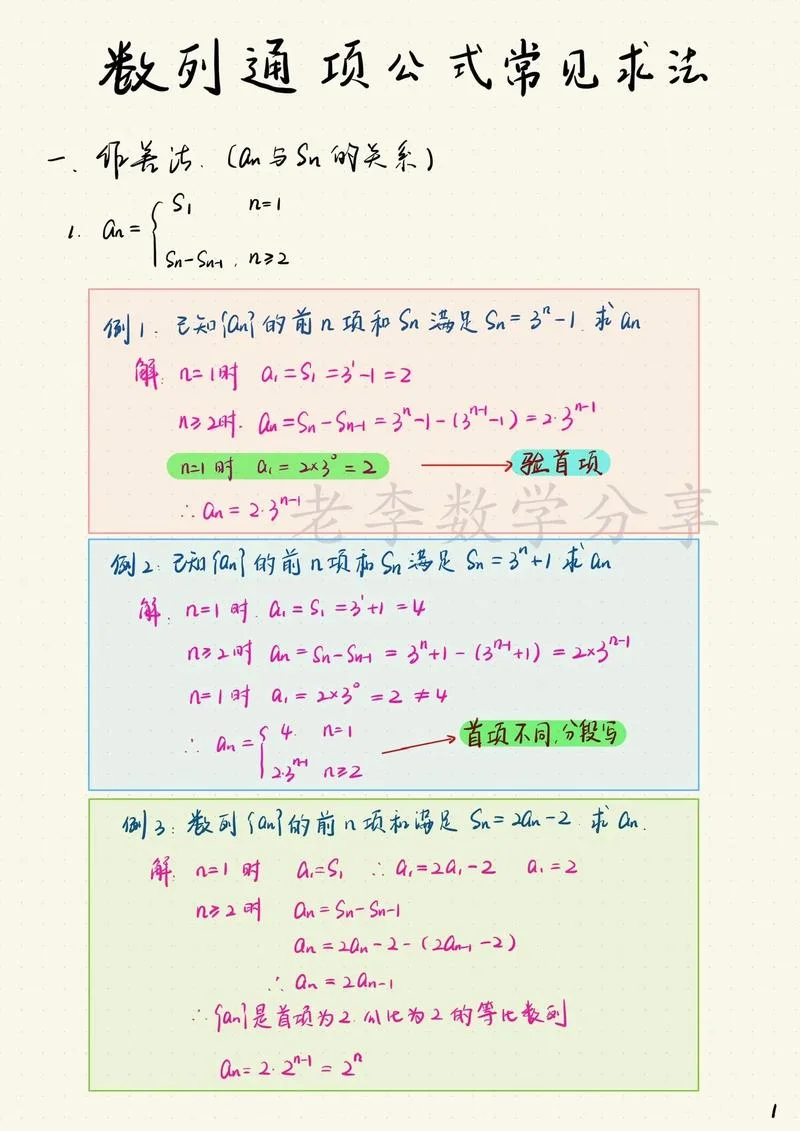 数列通项公式常见求法
一、作差法.(an与Sn的关系)
1. an={S1 n=1
Sn-Sn-1, n≥2
例1:已知{an}的前n项和Sn满足Sn=3^n-1.求an
解: n=1时 a1=S1=3^1-1=2
n≥2时. an=Sn-Sn-1=3^n-1-(3^{n-1}-1)=2·3^{n-1}
n=1时 a1=2×3^0=2 → 验首项
∴an=2·3^{n-1}
老李数学分享
例2:已知{an}的前n项和Sn满足Sn=3^n+1 求an
解: n=1时.a1=S1=3^1+1=4
n≥2时 an=Sn-Sn-1=3^n+1-(3^{n-1}+1)=2×3^{n-1}
n=1时 a1=2×3^0=2≠4
∴an={4. n=1 → 首项不同,分段写
2·3^{n-1} n≥2
例3:数列{an}的前n项和满足Sn=2an-2.求an.
解: n=1时 a1=S1 ∴a1=2a1-2 a1=2
n≥2时 an=Sn-Sn-1
an=2an-2-(2an-1-2)
∴an=2an-1
∴{an}是首项为2.公比为2的等比数列
an=2·2^{n-1}=2^n
1